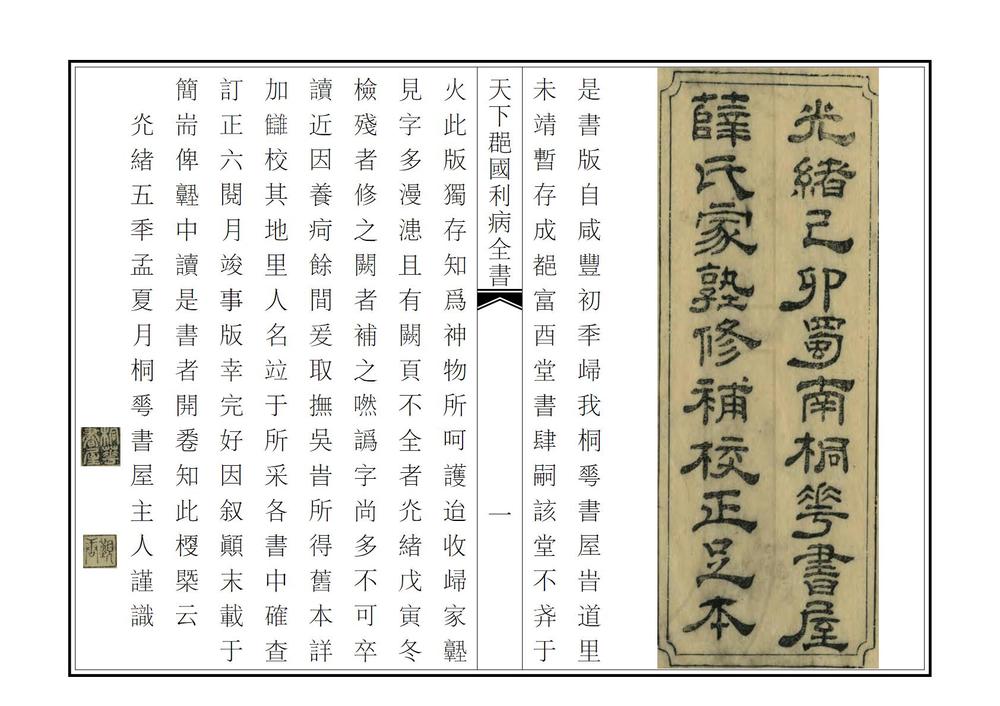 光緒己卯蜀南桐華書屋
薛氏家塾修補校正足本
是書版自咸豐初秊㱕我桐華書屋旹道里
未靖暫存成都富酉堂書肆嗣該堂不戒于
天下郡國利病全書 一
火此版獨存知爲神物所呵護迨收㱕家塾
見字多漫漶且有闕頁不全者灮緒戊寅冬
檢殘者修之闕者補之嘫譌字尚多不可卒
讀近因養疴餘間爰取撫吳旹所得舊本詳
加讎校其地里人名竝于所采各書中確查
訂正六閱月竣事版幸完好因叙顚末載于
簡耑俾塾中讀是書者開卷知此梗槩云
灮緒五秊孟夏月桐華書屋主人謹識
桐華書屋